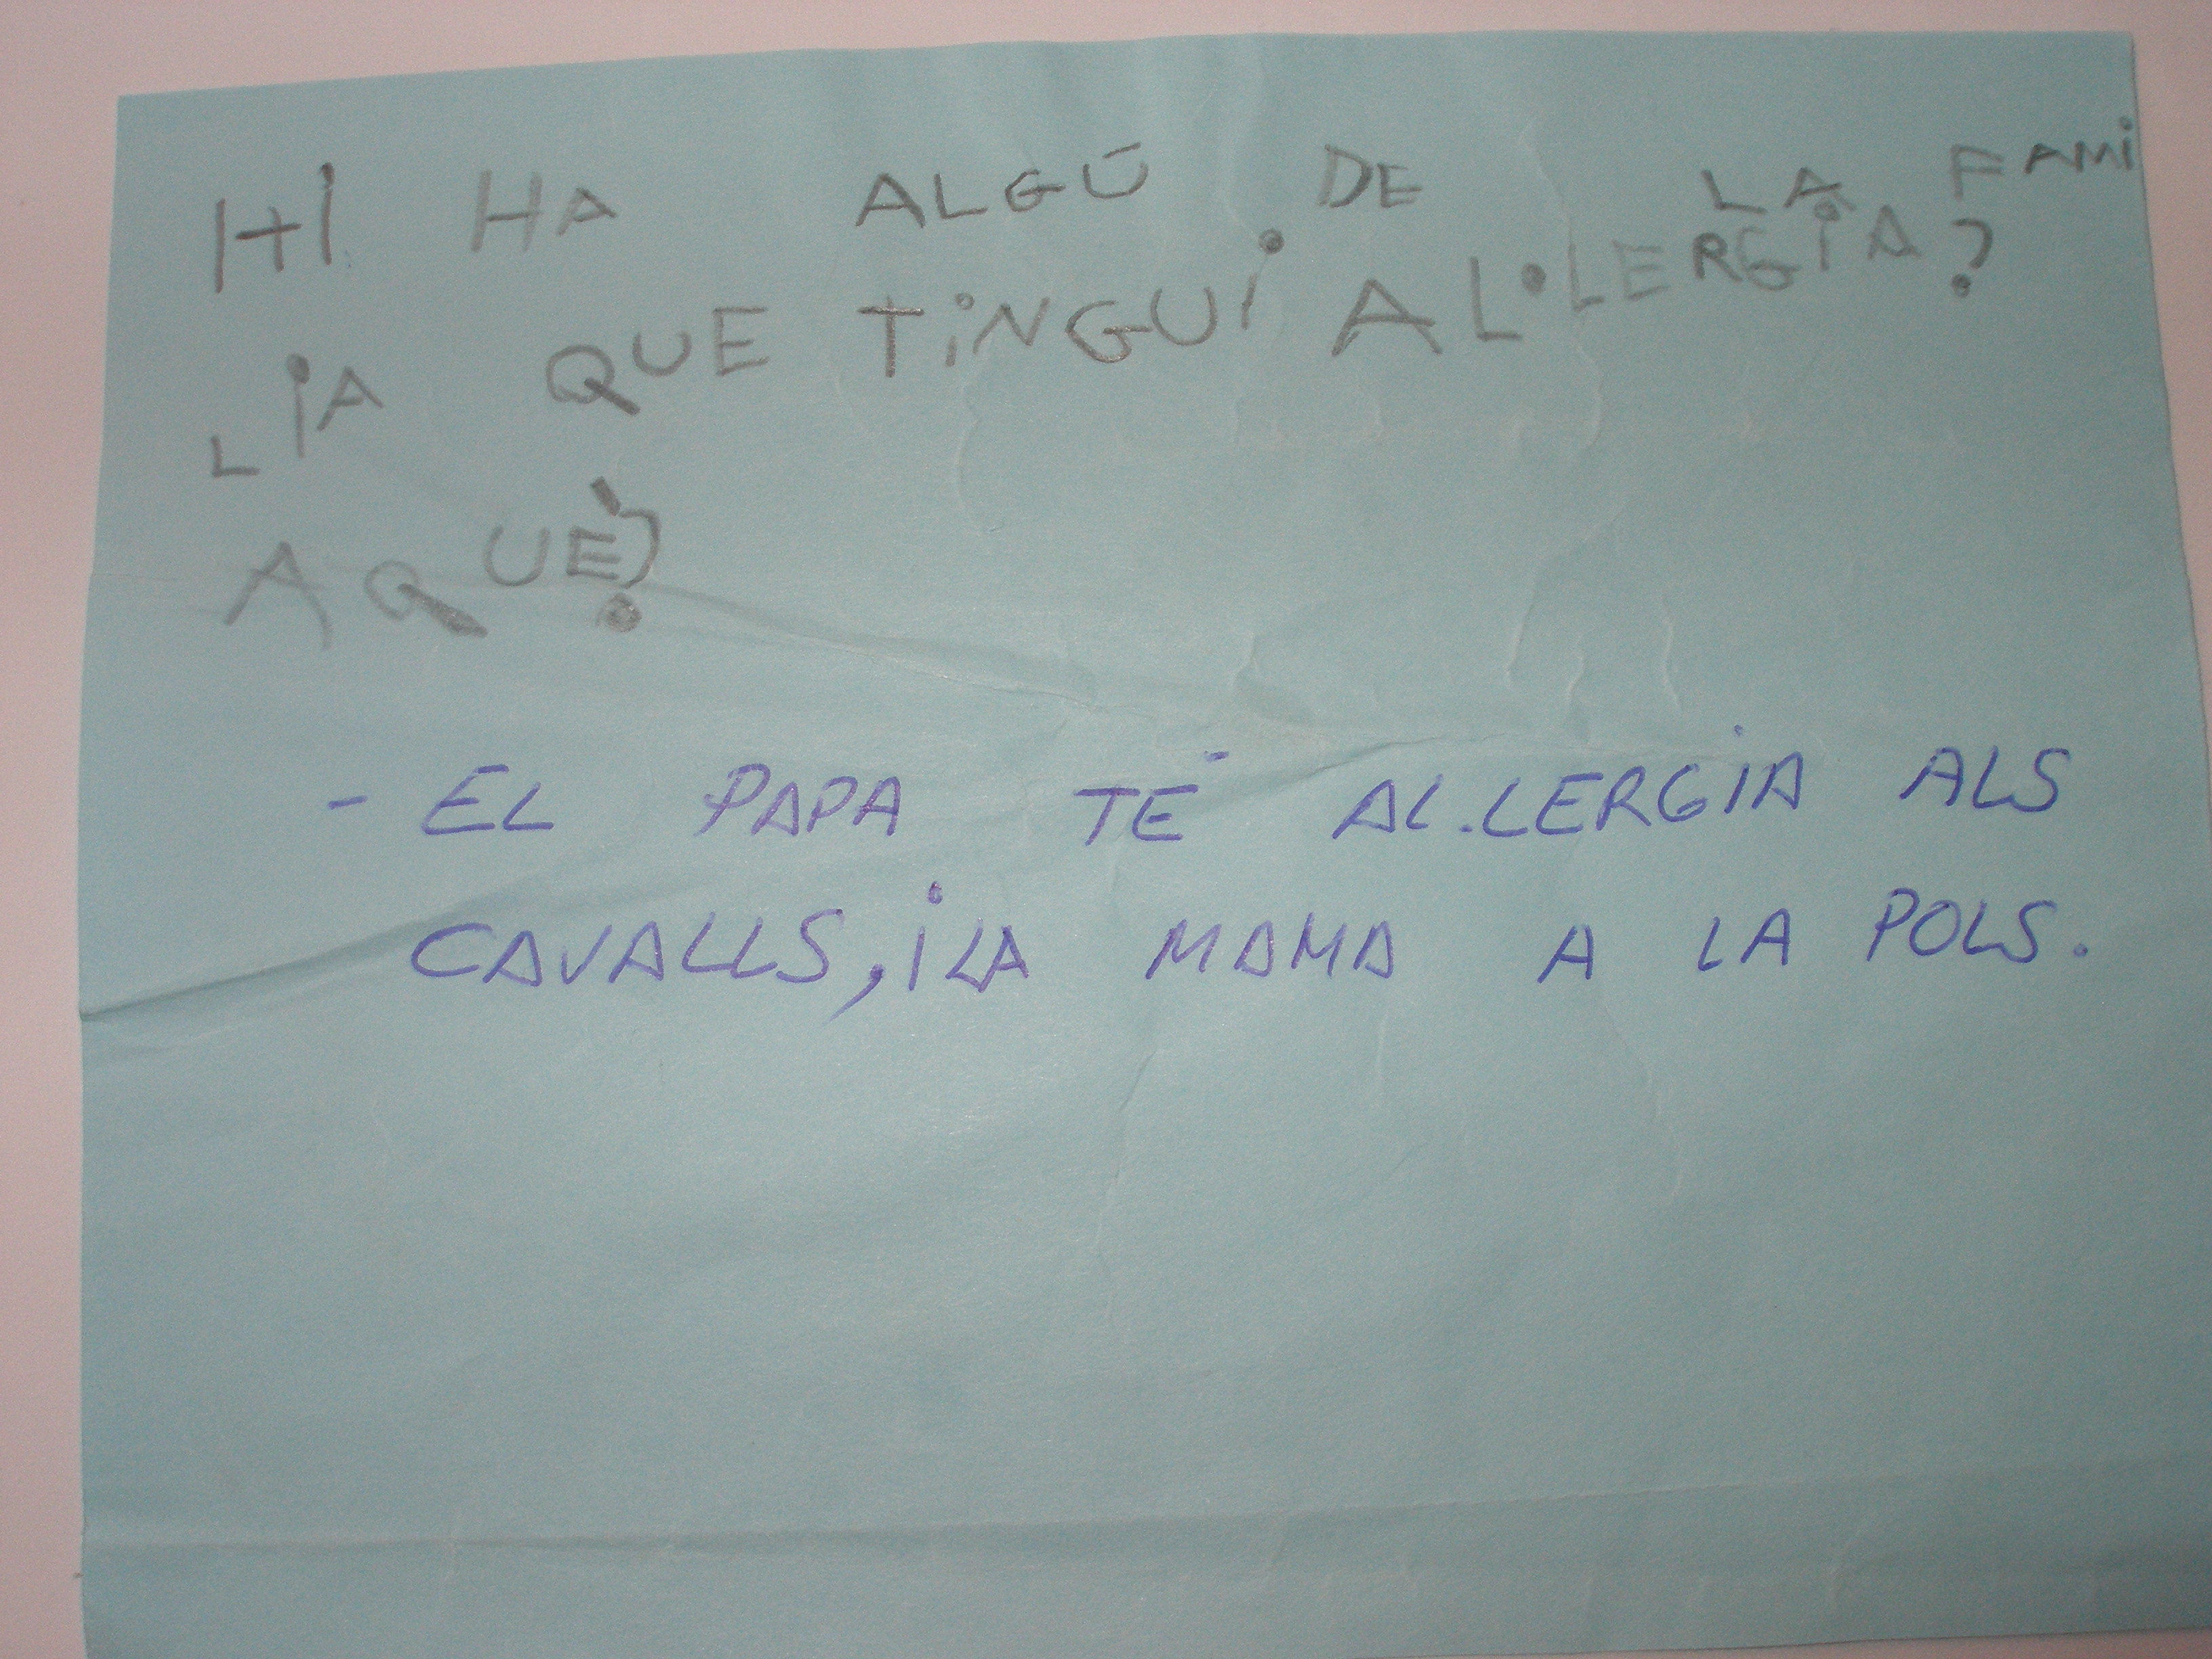 Hi HA ALGÚ DE LA FAMi
LiA QUE TiNGUi AL·LERGiA?
A QUÈ?
- EL PAPA TÉ AL.LERGiA ALS
CAVALLS, i LA MAMA A LA POLS.